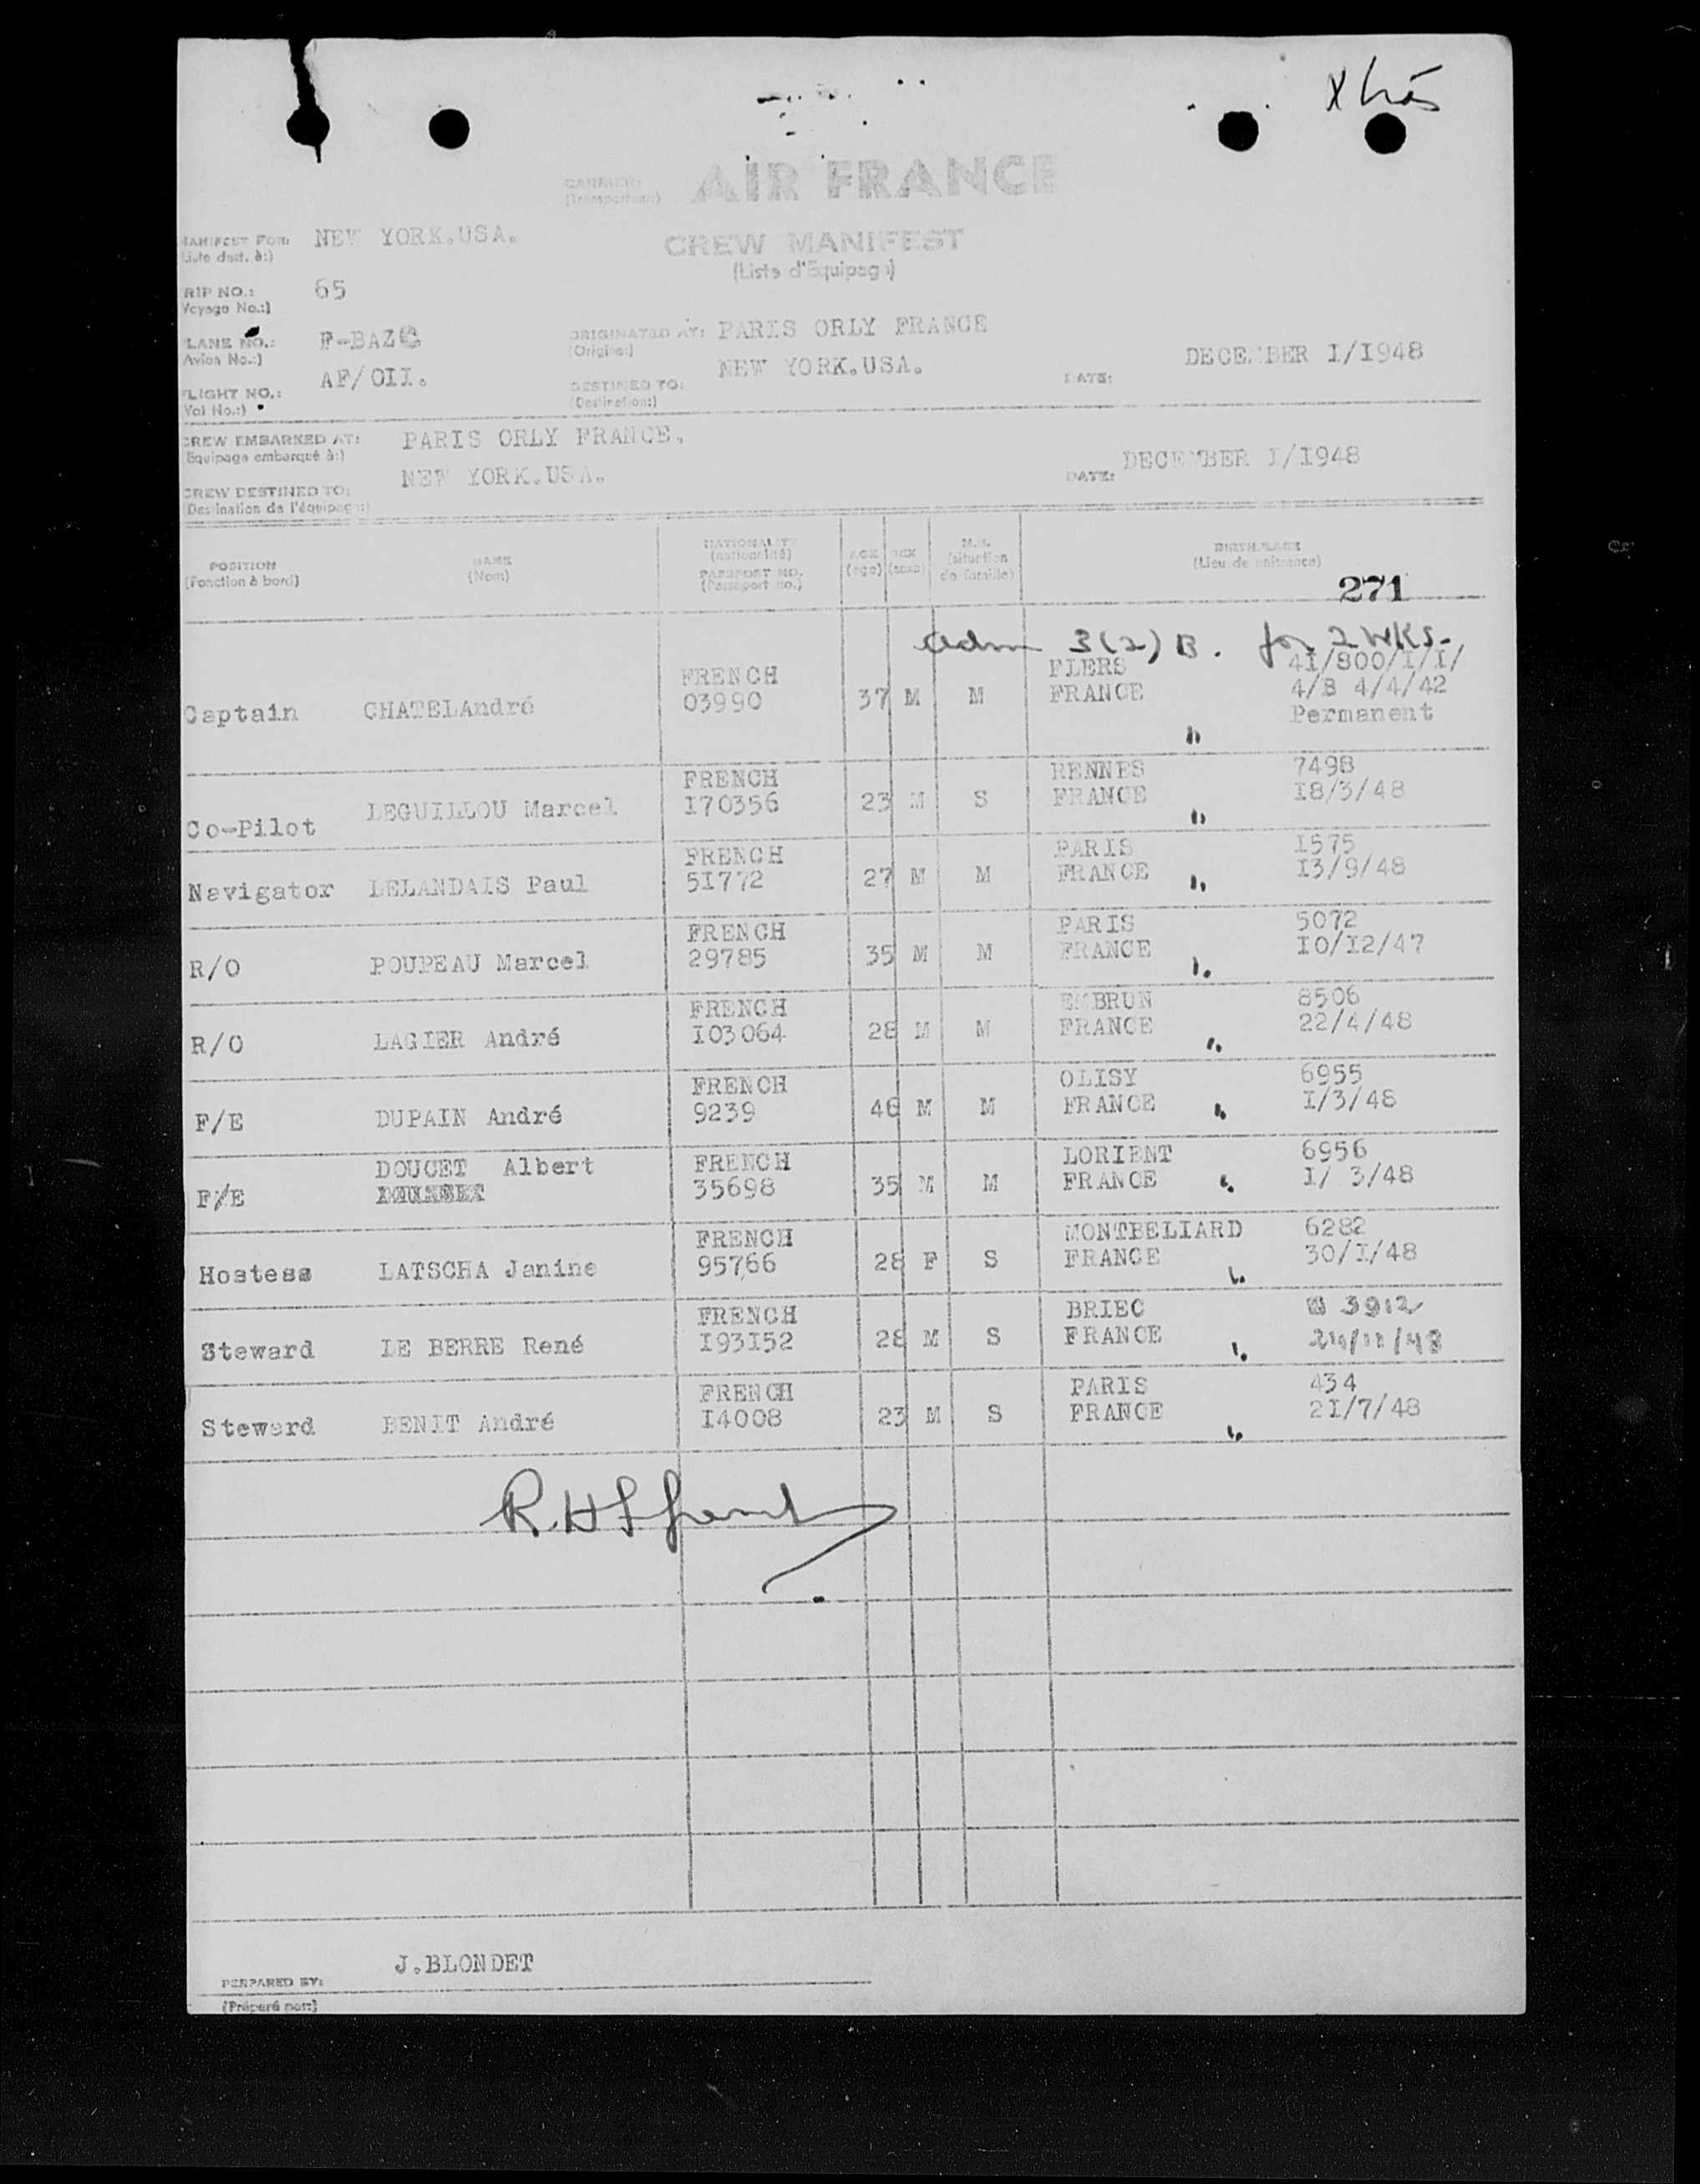 CARRIER: AIR FRANCE
(Transporteur:)
MANIFEST FOR: NEW YORK.USA.
(Liste dest. à:)
CREW MANIFEST
(Liste d'Equipage)
TRIP NO.: 65
Voyage No.:)
PLANE NO.: F-BAZ
(Avion No.:)
ORIGINATED AT: PARIS ORLY FRANCE
(Origine:)
FLIGHT NO.: AF/OII.
(Vol No.:)
DESTINED TO: NEW YORK.USA.
(Destination:)
DATE: DECEMBER I/I948
CREW EMBARKED AT: PARIS ORLY FRANCE.
(Equipage embarqué à:)
CREW DESTINED TO: NEW YORK.USA.
(Destination de l'équipage:)
DATE: DECEMBER I/I948
POSITION
(Fonction à bord)
NAME
(Nom)
NATIONALITY
(nationalité)
PASSPORT NO.
(Passeport no.)
AGE
(age)
SEX
(sexe)
M.S.
(situation
de famille)
BIRTHPLACE
(Lieu de naissance)
271
adm 3(2) B. for 2 WKS.
FRENCH FLERS 4I/800/I/I/
Captain CHATELAndré 03990 37 M M FRANCE 4/B 4/4/42
Permanent
FRENCH RENNES 7498
Co-Pilot LEGUILLOU Marcel I70356 23 M S FRANCE I8/3/48
FRENCH PARIS I575
Navigator LELANDAIS Paul 5I772 27 M M FRANCE I3/9/48
FRENCH PARIS 5072
R/O POUPEAU Marcel 29785 35 M M FRANCE IO/I2/47
FRENCH EMBRUN 8506
R/O LAGIER André I03064 28 M M FRANCE 22/4/48
FRENCH OLISY 6955
F/E DUPAIN André 9239 46 M M FRANCE I/3/48
DOUCET Albert FRENCH LORIENT 6956
F/E 35698 35 M M FRANCE I/ 3/48
FRENCH MONTBELIARD 6282
Hostess LATSCHA Janine 95766 28 F S FRANCE 30/I/48
FRENCH BRIEC 3912
Steward LE BERRE René I93I52 28 M S FRANCE 24/11/48
FRENCH PARIS 434
Steward BENIT André I4008 23 M S FRANCE 2I/7/48
J.BLONDET
PERPARED BY:
(Préparé par:)